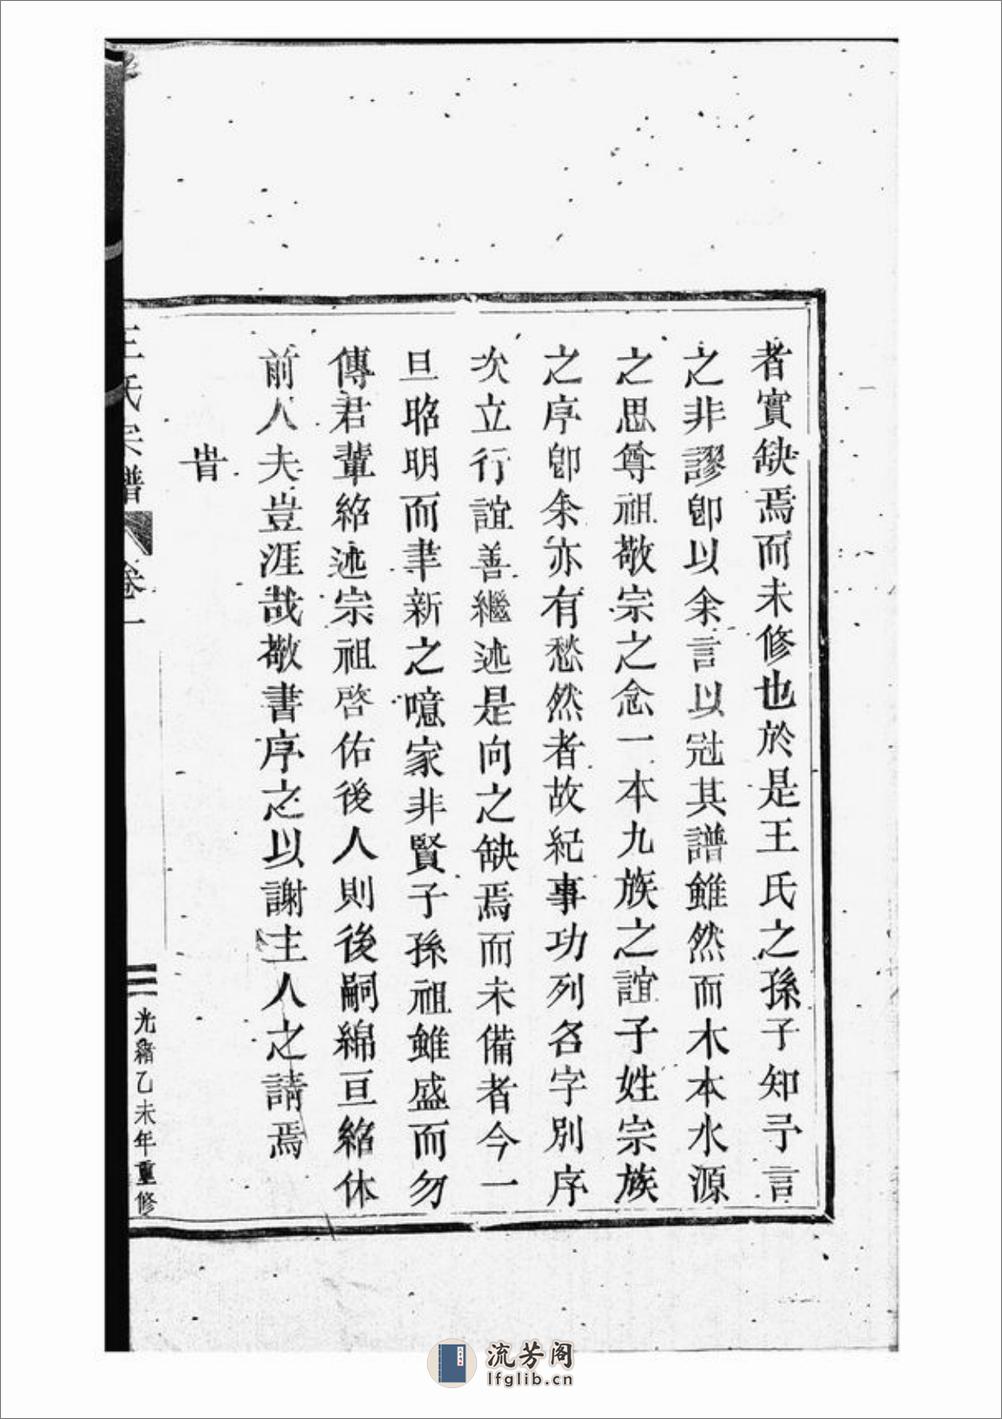 者實缺焉而未修也於是王氏之孫子知予言
之非謬卽以余言以冠其譜雖然而木本水源
之思尊祖敬宗之念一本九族之誼子姓宗族
之序卽余亦有愁然者故紀事功列名字別序
次立行誼善繼述是向之缺焉而未備者今一
旦昭明而聿新之噫家非賢子孫祖雖盛而勿
傳君輩紹述宗祖啓佑後人則後嗣綿亘紹休
前人夫豈涯哉敬書序之以謝主人之請焉
旹
王氏宗譜
卷一
二
光緒乙未年重修
流芳阁
lfglib.cn